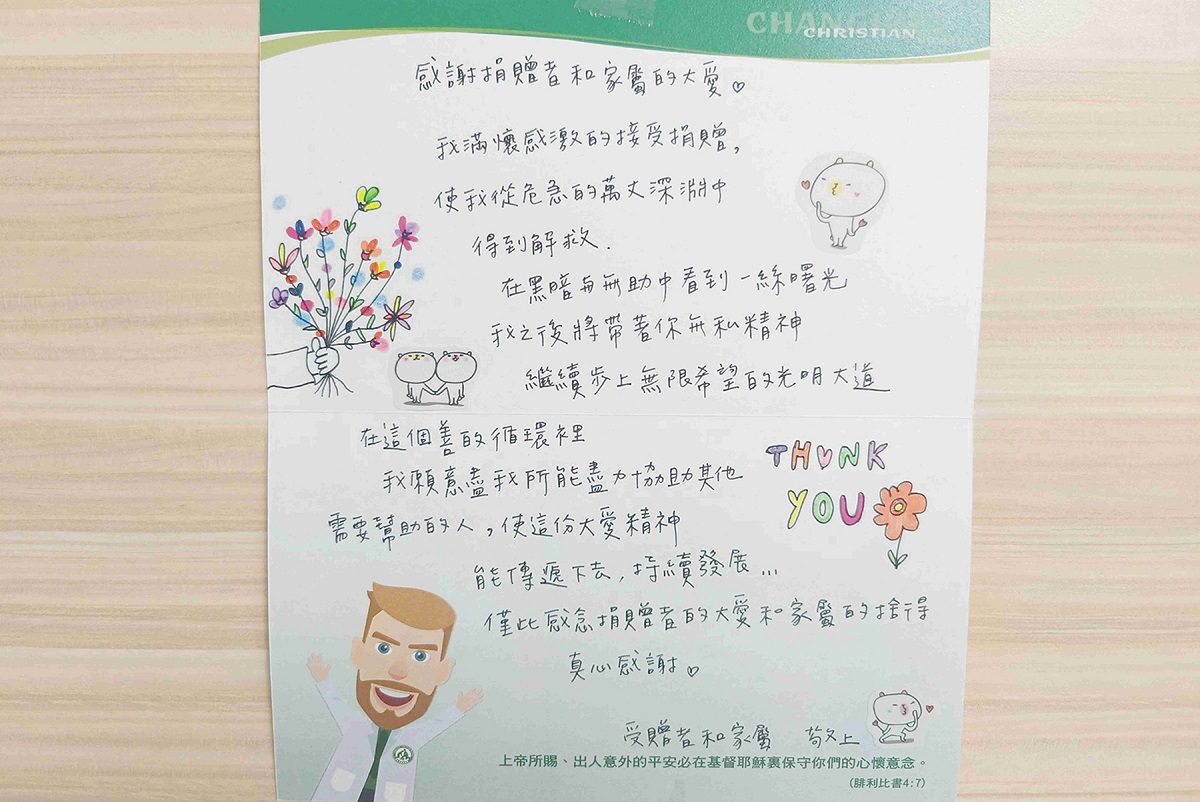 CHANG
CHRISTIAN
感謝捐贈者和家屬的大愛。
我滿懷感激的接受捐贈,
使我從危急的萬丈深淵中
得到解救.
在黑暗與無助中看到一絲曙光
我之後將帶著你無私精神
繼續步上無限希望的光明大道
在這個善的循環裡
我願意盡我所能盡力協助其他
需要幫助的人,使這份大愛精神
能傳遞下去,持續發展...
僅此感念捐贈者的大愛和家屬的捨得
真心感謝
THANK
YOU
受贈者和家屬 敬上
上帝所賜、出人意外的平安必在基督耶穌裏保守你們的心懷意念。
(腓利比書4:7)